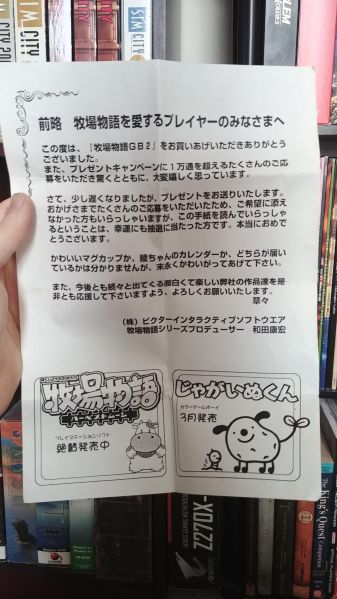 SIM CITY
CITY 20
SIM CITY
HARLEM
前略　牧場物語を愛するプレイヤーのみなさまへ
この度は、『牧場物語GB2』をお買いあげいただきありがとうございました。
また、プレゼントキャンペーンに1万通を超えるたくさんのご応募をいただき驚くとともに、大変嬉しく思っています。
さて、少し遅くなりましたが、プレゼントをお送りいたします。
おかげさまでたくさんのご応募をいただいたため、ご希望に添えなかった方もいらっしゃいますが、この手紙を読んでいらっしゃるということは、幸運にも抽選に当たった方です。本当におめでとうございます。
かわいいマグカップか、綾ちゃんのカレンダーか、どちらが届いているかは分かりませんが、末永くかわいがってあげて下さい。
また、今後とも続々と出てくる面白くて楽しい弊社の作品達を是非とも応援して下さいますよう、よろしくお願いいたします。
草々
（株）ビクターインタラクティブソフトウエア
牧場物語シリーズプロデューサー　和田康宏
牧場物語
プレイステーションソフト
絶賛発売中
じゃがいぬくん
カラーゲームボーイ
3月発売
Z270X-
The King's Quest
Companion